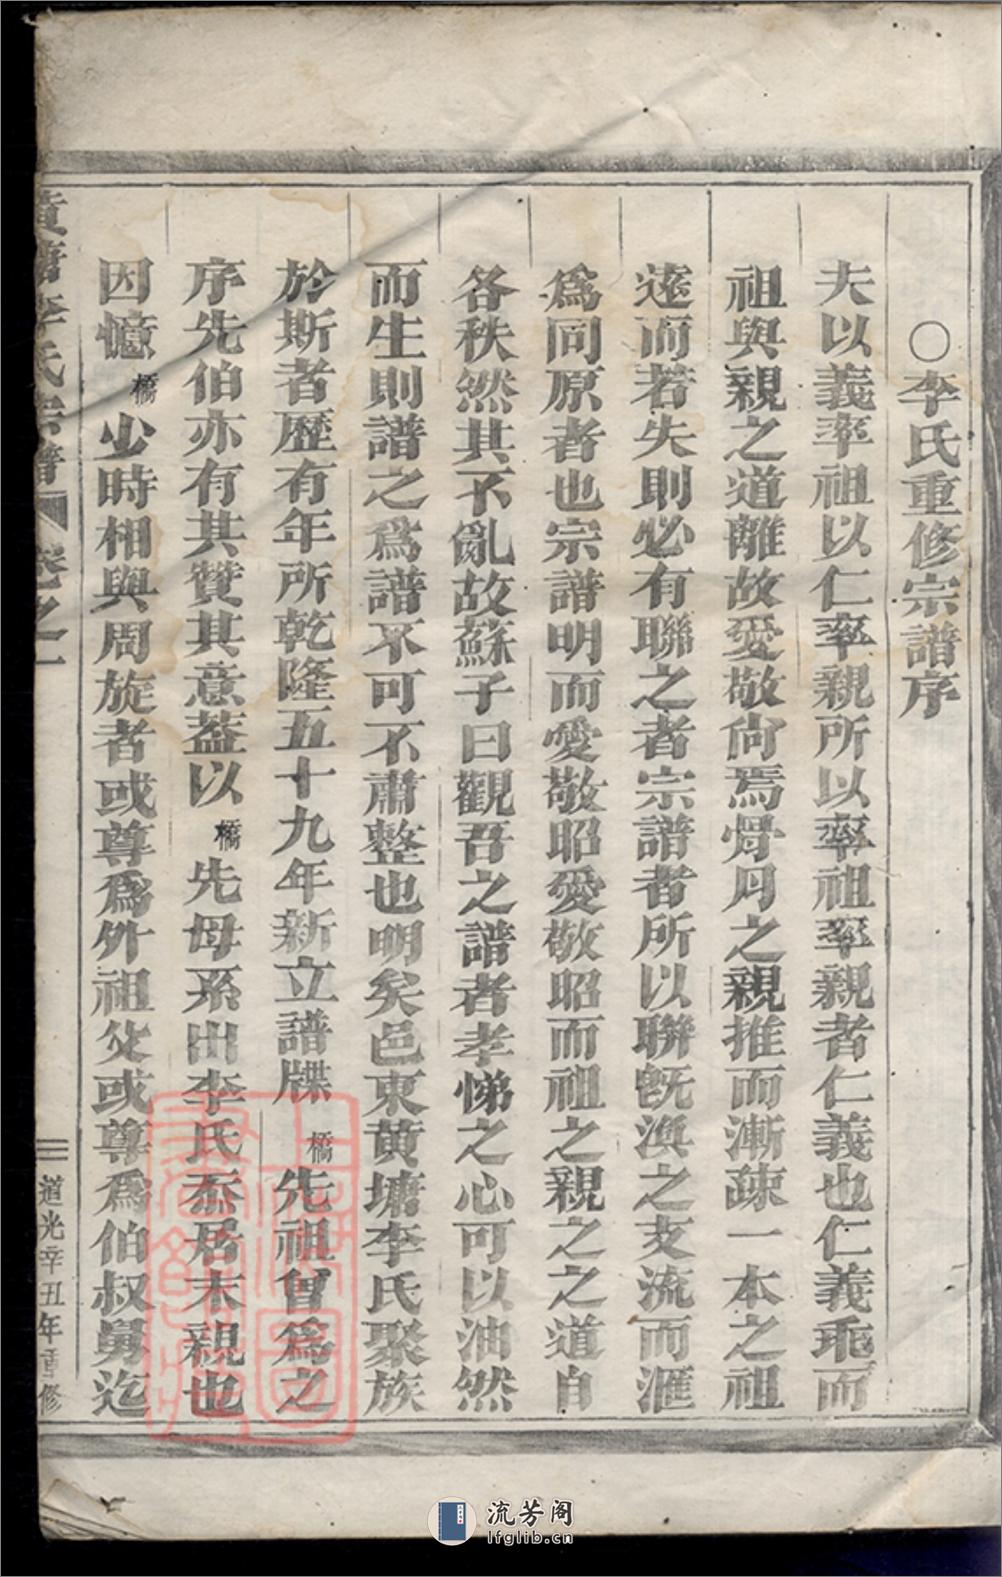 ○李氏重修宗譜序
夫以義率祖以仁率親所以率祖率親者仁義也仁義乖而
祖與親之道離故愛敬尚焉骨月之親推而漸疎一本之祖
遠而若失則必有聯之者宗譜者所以聯旣渙之支流而滙
爲同原者也宗譜明而愛敬昭愛敬昭而祖之親之之道自
各秩然其不亂故蘇子曰觀吾之譜者孝悌之心可以油然
而生則譜之爲譜不可不肅整也明矣邑東黄塘李氏聚族
於斯者歷有年所乾隆五十九年新立譜牒橋先祖曾爲之
序先伯亦有其贊其意蓋以橋先母系出李氏忝居末親也
因憶橋少時相與周旋者或尊爲外祖父或尊爲伯叔舅迄
黄塘李氏宗譜 卷之一
道光辛丑年重修
流芳阁
lfglib.cn